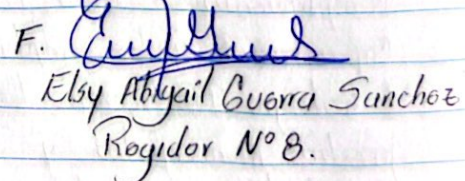 F.
Elsy Abigail Guerra Sanchez
Regidor N° 8.